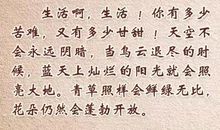 生活啊，生活！你有多少
苦难，又有多少甘甜！天空不
会永远阴暗，当乌云退尽的时
候，蓝天上灿烂的阳光就会照
亮大地。青草照样会鲜绿无比，
花朵仍然会蓬勃开放。